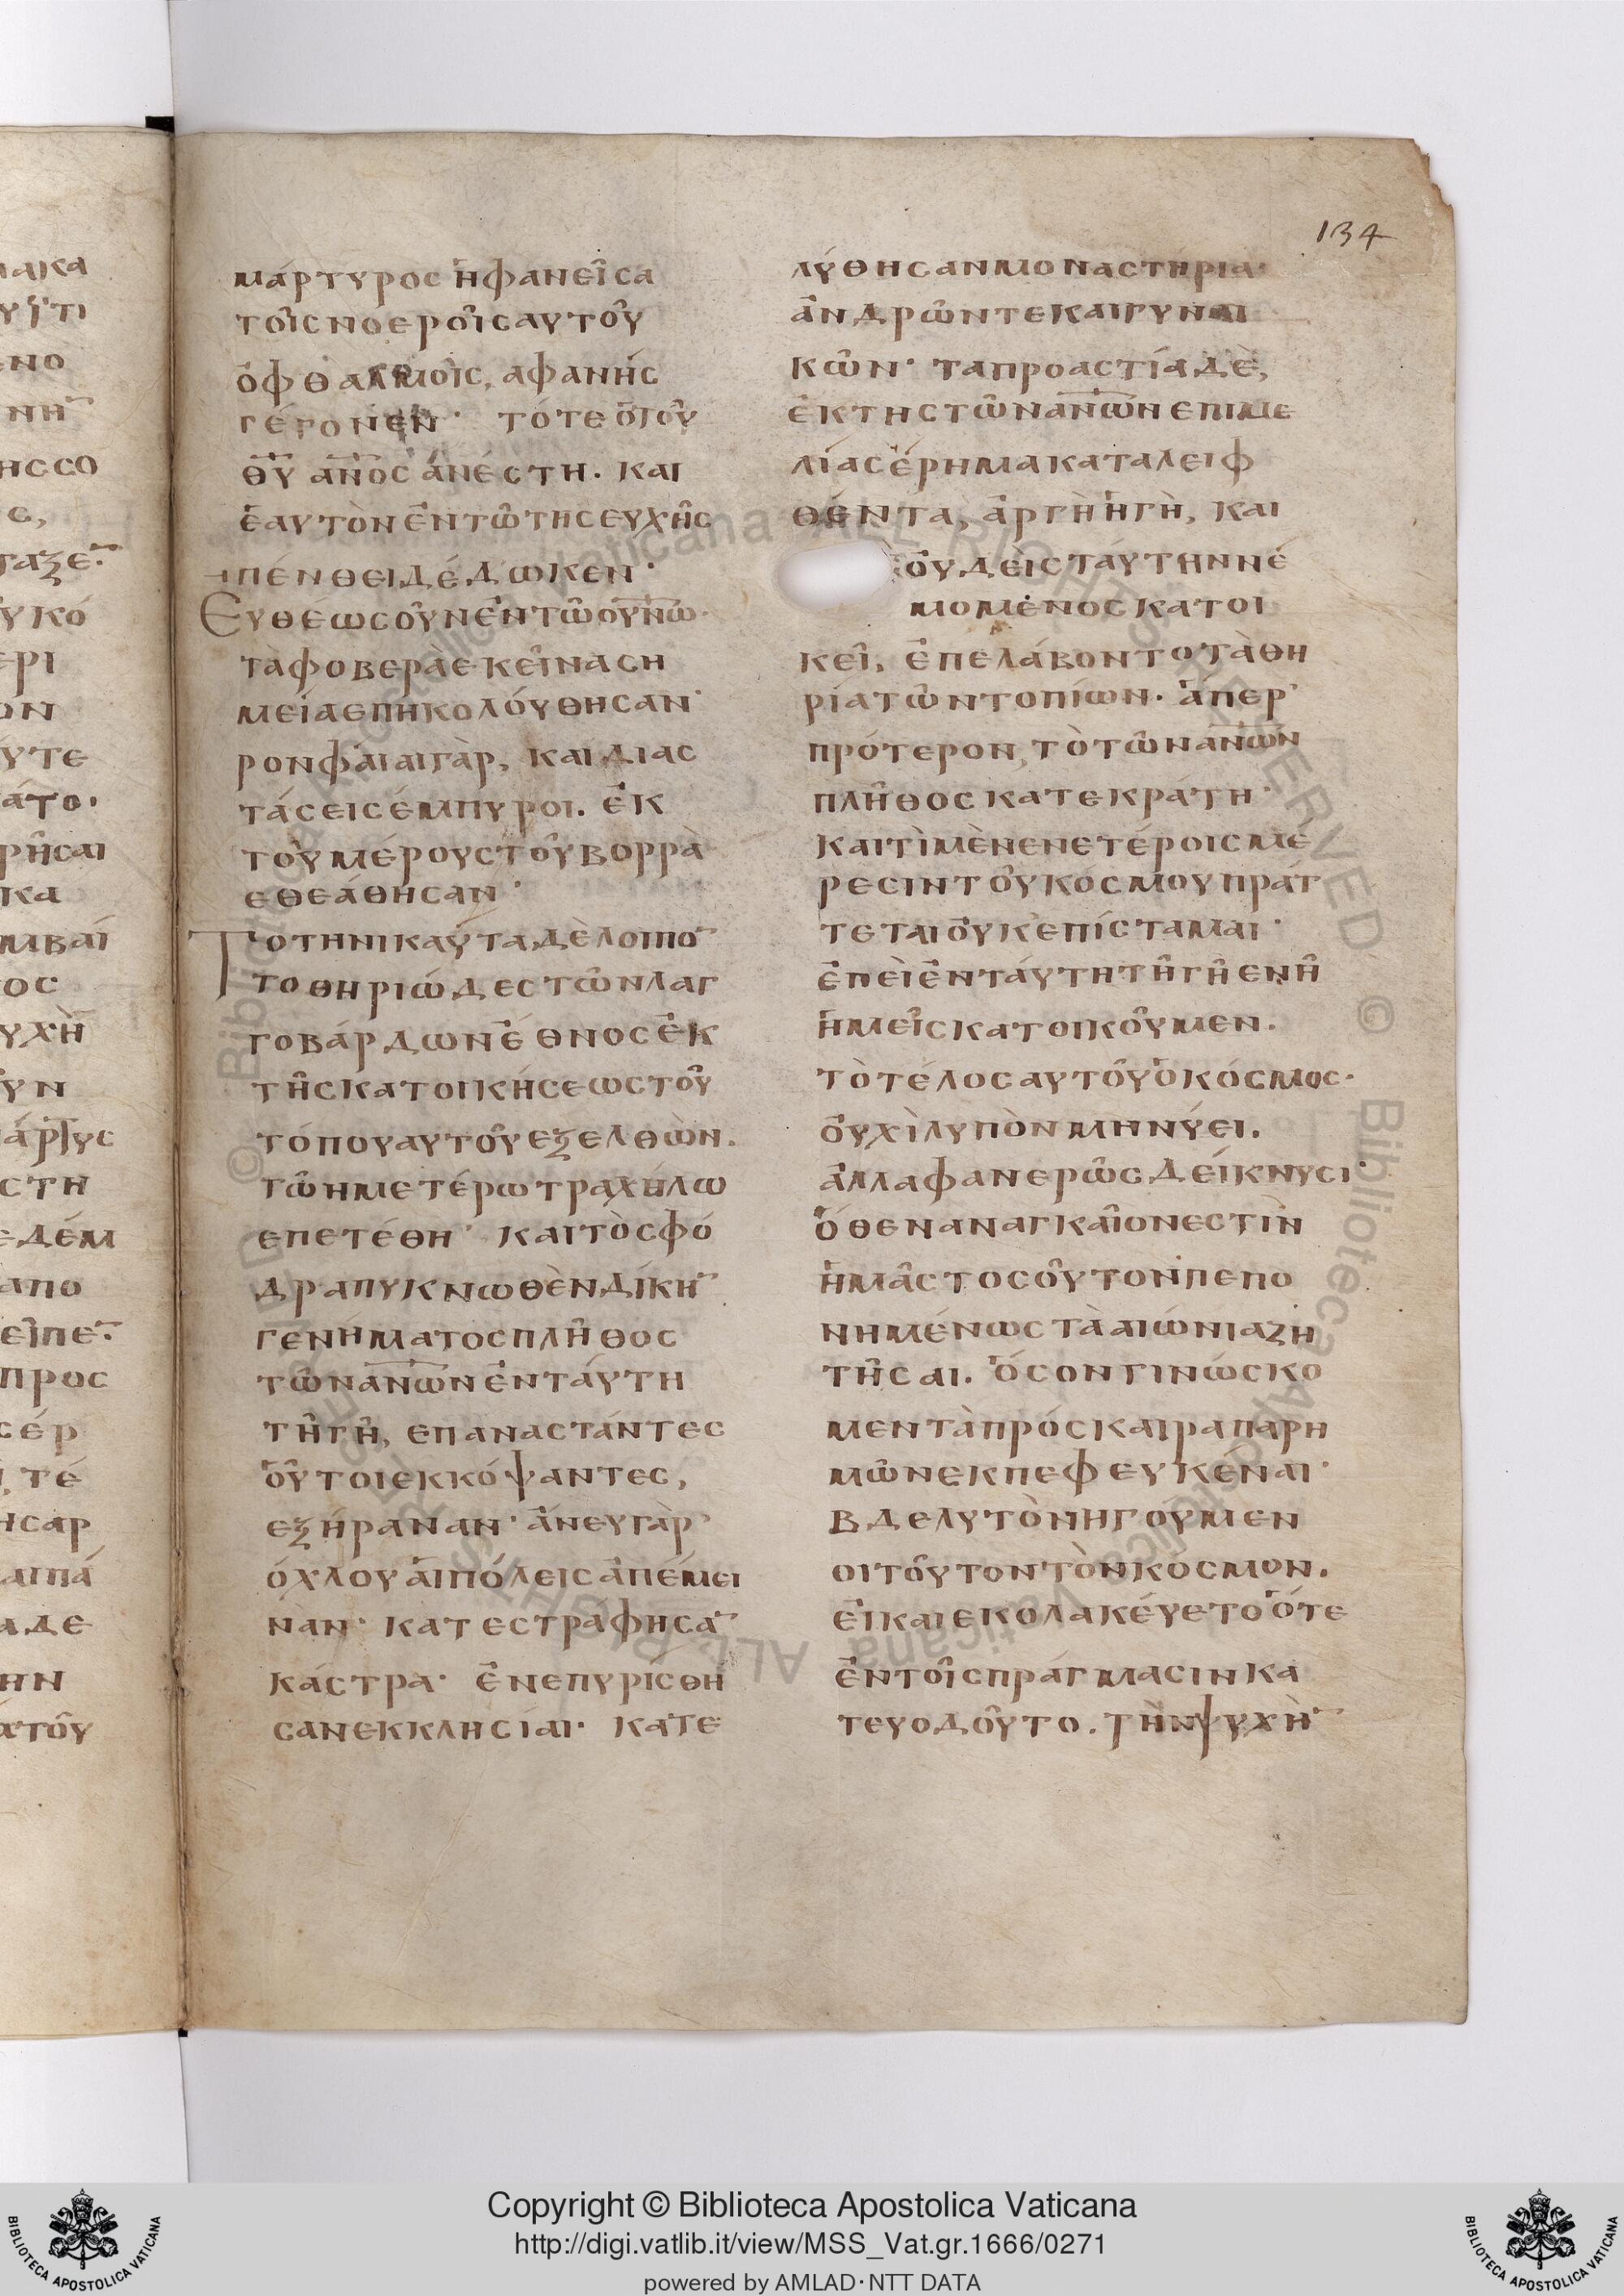 134
μάρτυρος ἡ φανεῖσα
τοῖς νοεροῖς αυτοῦ
ὀφθαλμοῖς, αφανής
γέγονεν· τότε ὁ τοῦ
θ̅υ̅ α̅ν̅ο̅ς̅ ἀνέστη. και
ἑαυτὸν ἐν τῶ της ευχῆς
πένθει δέδωκεν·
Ευθέως οὖν ἐν τῶ ο̅υ̅ν̅ω̅·
τὰ φοβερὰ εκεῖνα ση
μεία επηκολόυθησαν·
ρονφάιαι γὰρ, και διας
τάσεις έμπυροι. ἐκ
τοῦ μέρους τοῦ βορρὰ
εθεάθησαν·
Τοτηνικαύτα δὲ λοιπο̅
το θηριώδες τῶν λαγ
γοβάρδων ἔθνος ἐκ
τῆς κατοικήσεως τοῦ
τόπου αυτοῦ εξελθὼν.
τῶ ημετέρω τραχήλω
επετέθη· και τὸ σφό
δρα πυκνωθὲν δίκη̅
γενήματος πλῆθος
τῶν α̅ν̅ω̅ν̅ ἐν ταύτη
τῆ γῆ, επαναστάντες
οὗτοι εκκόψαντες,
εξήραναν· ἄνευ γὰρ
όχλου ἁι πόλεις ἀπέμει
ναν· κατεστράφησα̅
κάστρα· ἐνεπυρίσθη
σαν εκκλησίαι· κατε
λύθησαν μοναστήρια·
ἀνδρῶν τε και γυναι
κῶν· τα προαστία δὲ,
ἐκ της τῶν α̅ν̅ω̅ν̅ επιμε
λίας ἔρημα καταλειφ
θέντα, ἀργὴ ἡ γὴ, και
οὐδεὶς ταύτην νέ
μομενος κατοι
κεῖ, ἐπελάβοντο τὰ θη
ρία τῶν τοπίων. ἅπερ
πρότερον, τὸ τῶν α̅ν̅ω̅ν̅
πλῆθος κατεκράτη·
και τὶ μὲν εν ετέροις μέ
ρεσιν τοῦ κόσμου πράτ
τεται οὐκ επίσταμαι·
ἐπεὶ ἐν ταύτη τῆ γῆ εν ῆ
ἡμεῖς κατοικοῦμεν.
τὸ τέλος αυτοῦ ὁ κόσμος·
οὐχὶ λυπὸν μηνύει.
ἀλλα φανερῶς δείκνυσι·
ὅθεν αναγκαῖον εστὶν
ἡμᾶς τοσοῦτον πεπο
νημένως τὰ αιώνια ζη
τῆσαι. ὅσον γινώσκο
μεν τὰ πρόσκαιρα παρ η
μῶν εκπεφευκέναι·
βδελυτὸν ηγούμεν
οι τοῦτον τὸν κόσμον.
εἰ και εκολακέυετο ὅτε
ἐν τοῖς πράγμασιν κα
τευοδοῦτο. τὴν ψυχὴ̅
Copyright © Biblioteca Apostolica Vaticana
http://digi.vatlib.it/view/MSS_Vat.gr.1666/0271
powered by AMLAD·NTT DATA
BIBLIOTECA APOSTOLICA VATICANA
BIBLIOTECA APOSTOLICA VATICANA